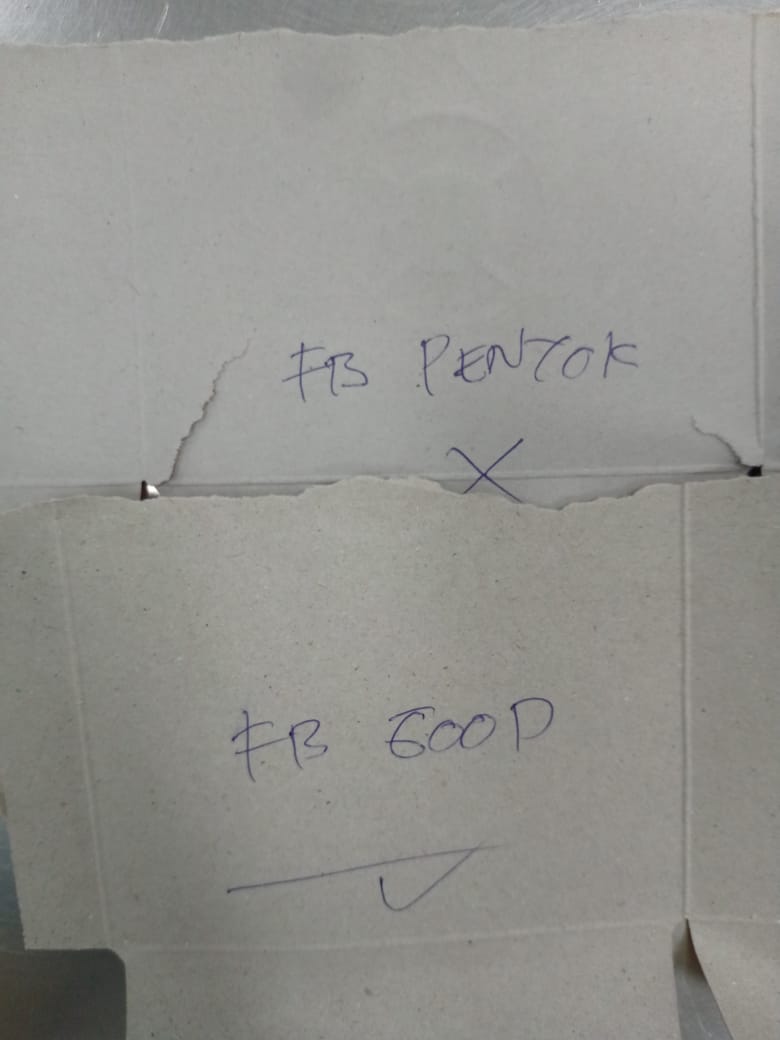 FB PENYOK
X
FB GOOD
✓